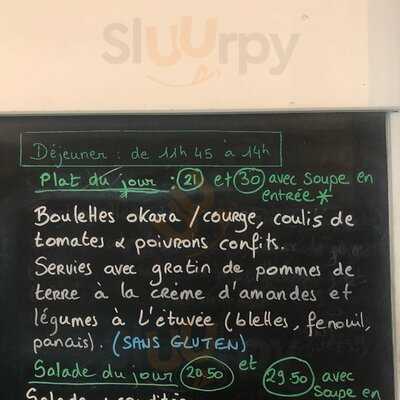 Sluurpy
Déjeuner : de 11h45 à 14h
Plat du jour : 21 et 30 avec soupe en
entrée *
Boulettes okara / courge, coulis de
tomates & poivrons confits.
Servies avec gratin de pommes de
terre à la crème d'amandes et
légumes à l'étuvée (blettes, fenouil,
panais). (SANS GLUTEN)
Salade du jour 20.50 et 29.50 avec
soupe en